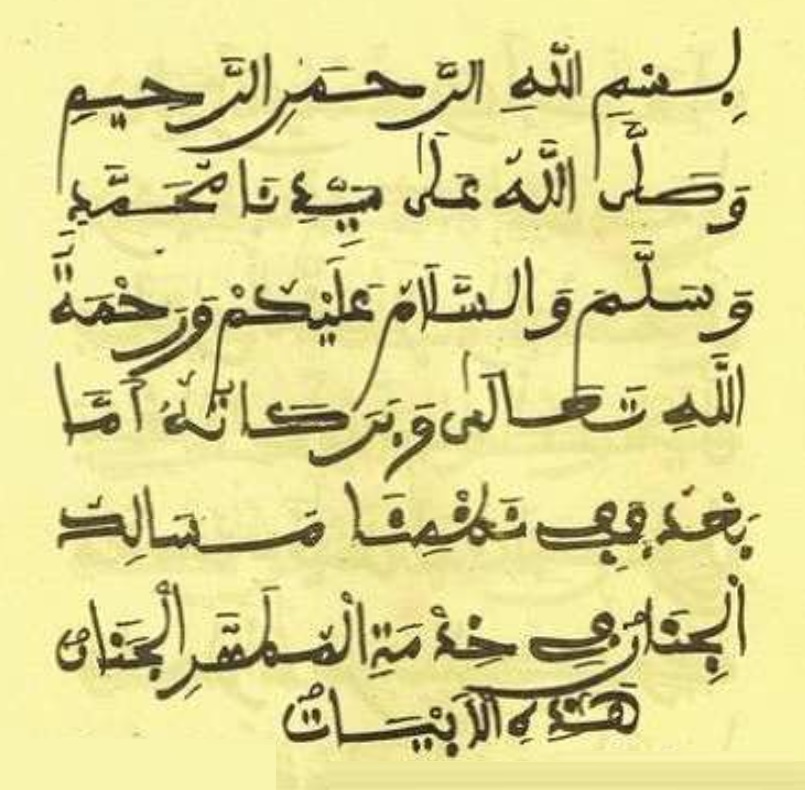 بِسْمِ اللَّهِ الرَّحْمَنِ الرَّحِيمِ
وَصَلَّى اللَّهُ عَلَى سَيِّدِنَا مُحَمَّدٍ
وَسَلَّمَ وَالسَّلَامُ عَلَيْكُمْ وَرَحْمَةُ
اللَّهِ تَعَالَى وَبَرَكَاتُهُ أَمَّا
بَعْدُ فَفِي نَظْمِنَا مَسَالِكَ
الْجِنَانِ فِي خِدْمَةِ الْمُطَهَّرِ الْجَنَانِ
هَذِهِ الْأَبْيَاتُ